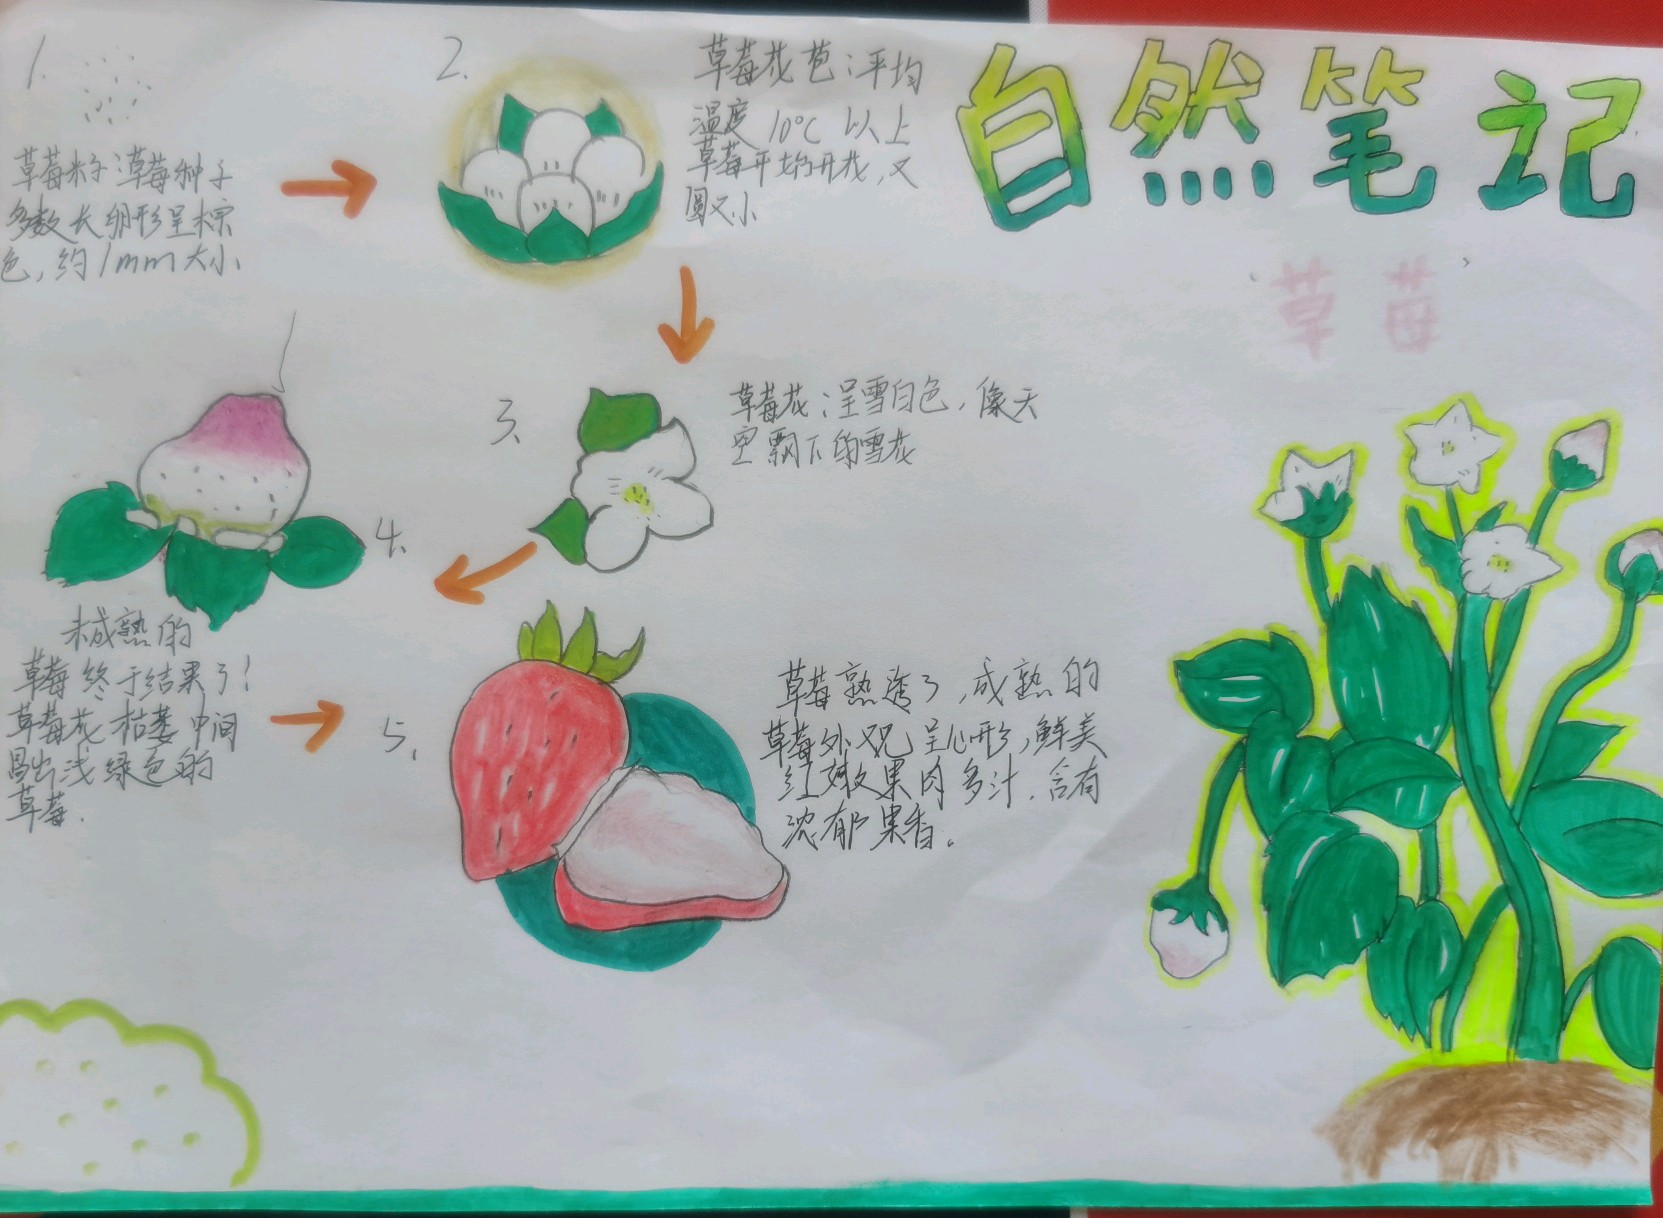 自然笔记
草莓
1.
草莓籽：草莓种子
多数长卵形呈棕
色，约1mm大小
2.
草莓花苞：平均
温度10℃以上
草莓开始开花，又
圆又小
3、
草莓花：呈雪白色，像天
空飘下的雪花
4、
熟的
草莓终于结果了！
草莓花枯萎中间
冒出浅绿色的
草莓.
5、
草莓熟透了，成熟的
草莓外观呈心形，鲜美
红嫩果肉多汁，含有
浓郁果香。